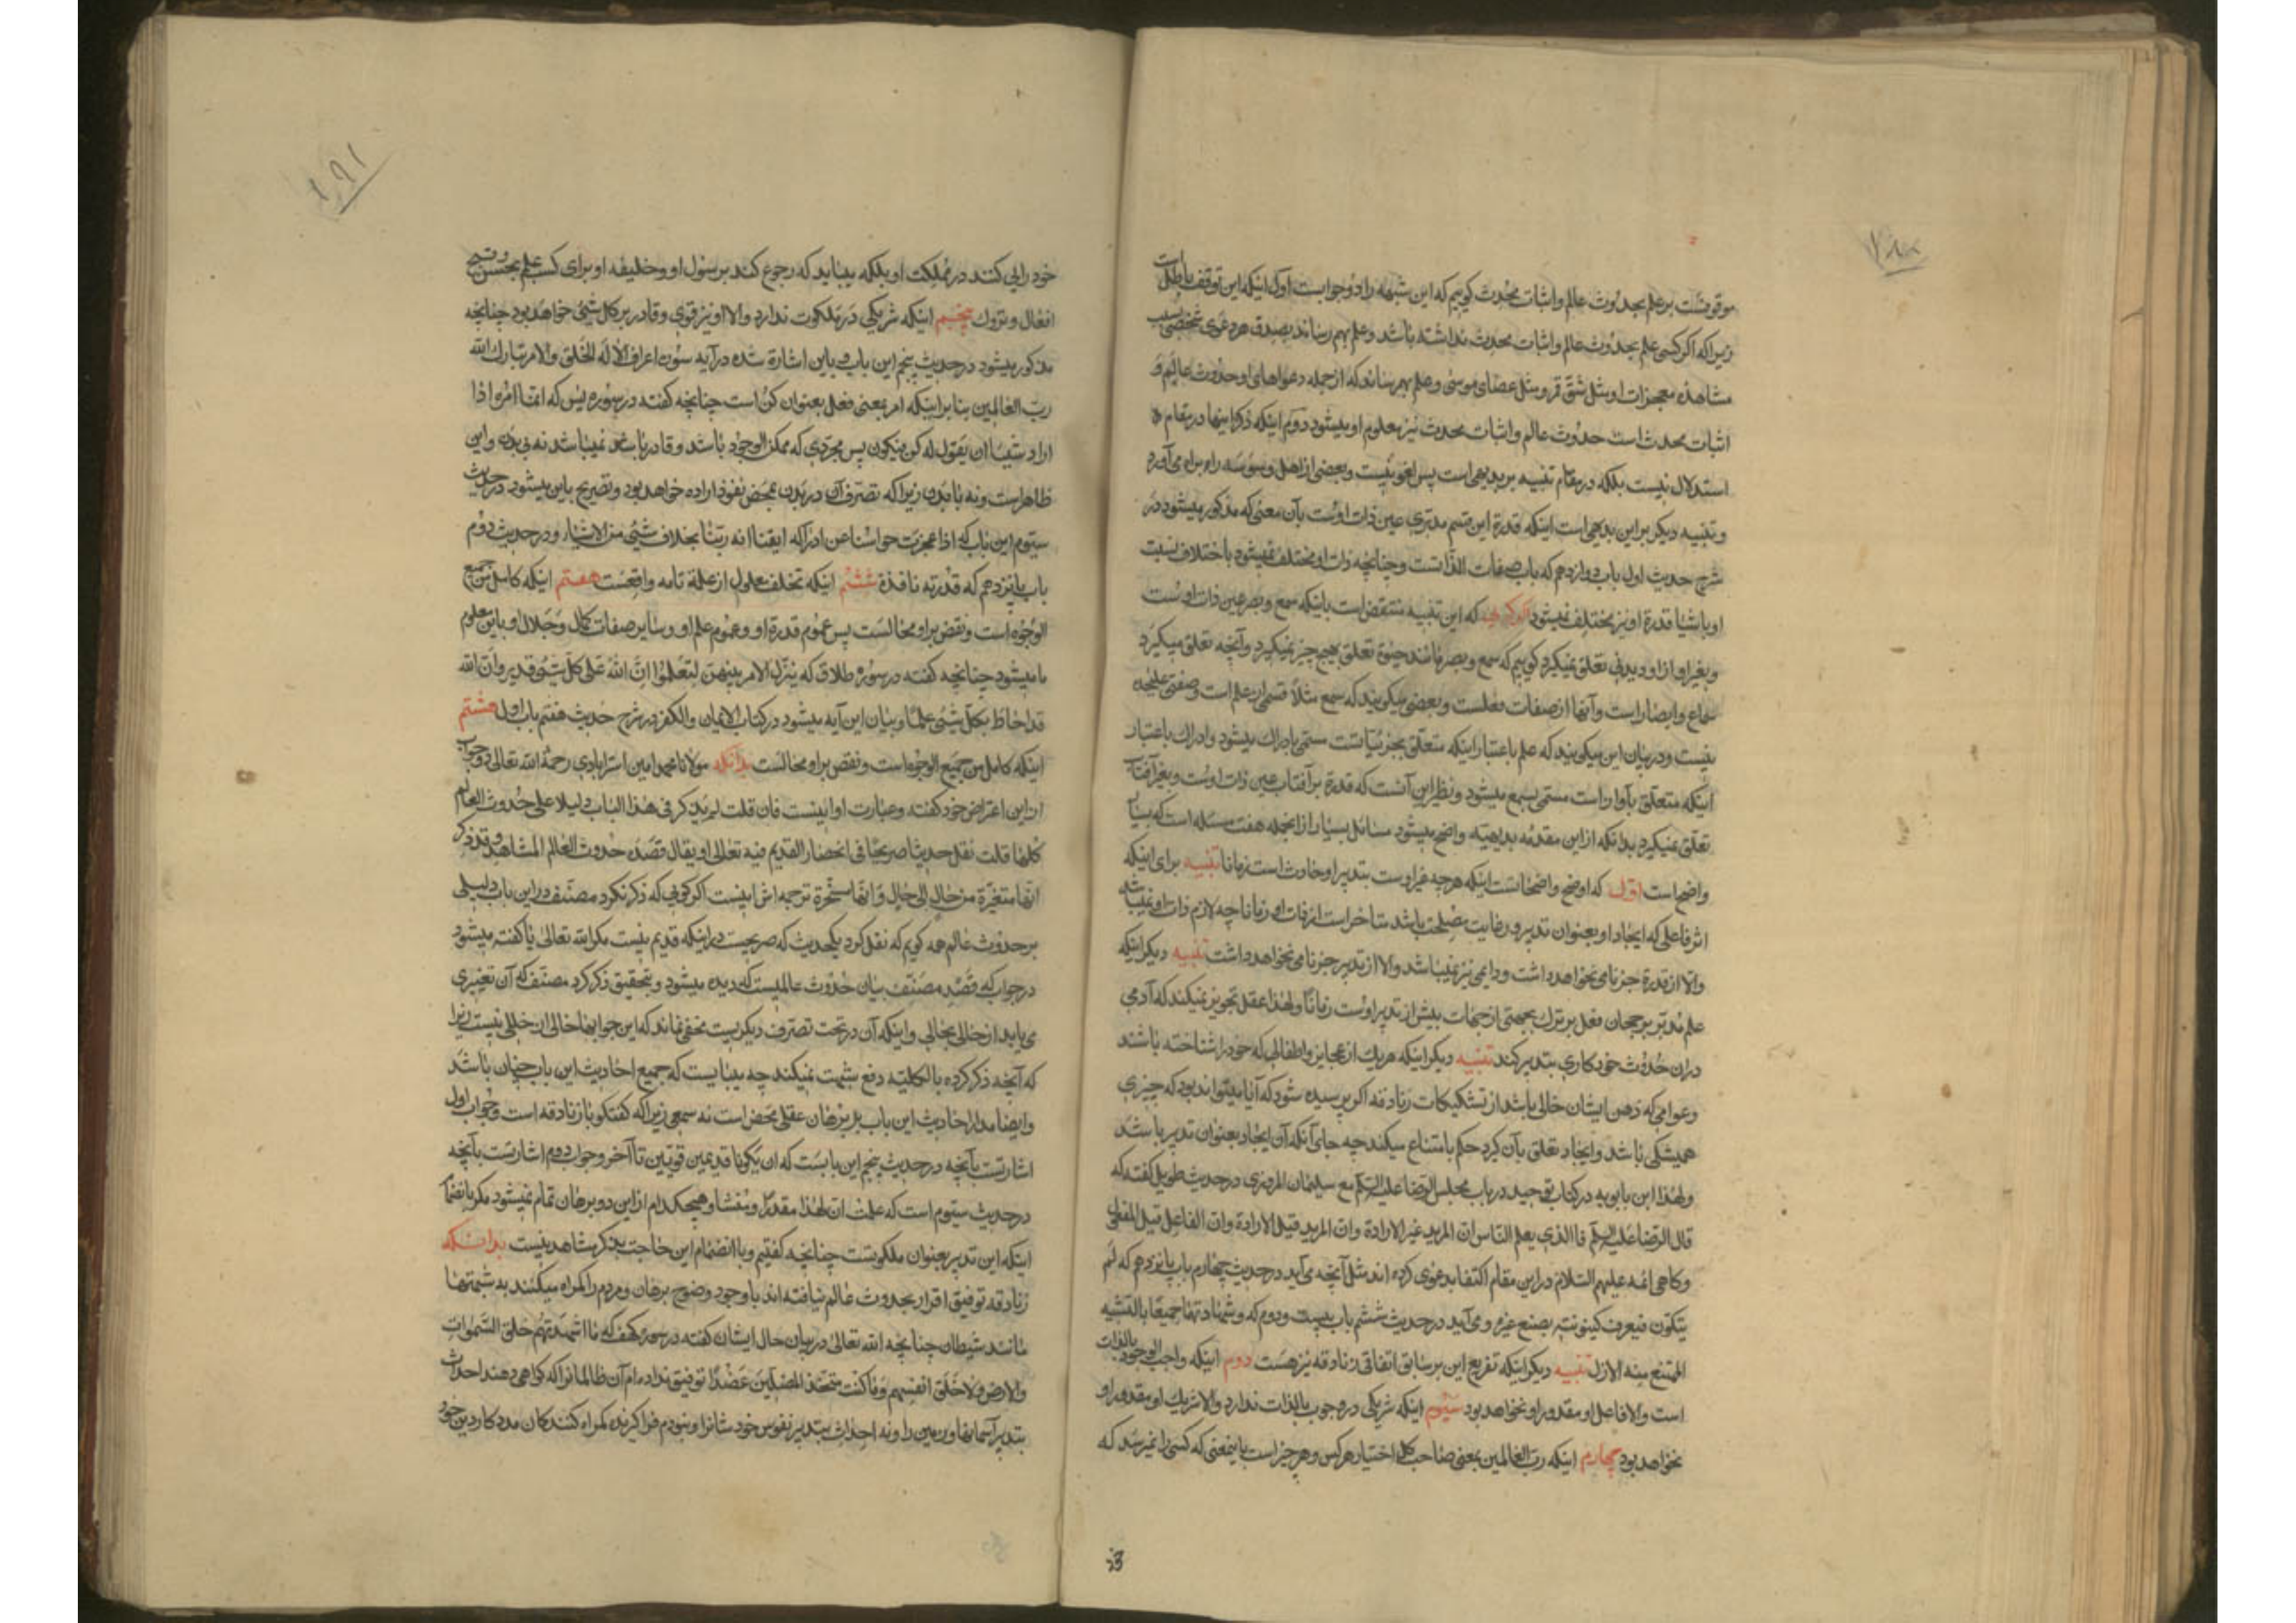 موقوفست بر علم بحدوث عالم و اثبات محدث کوییم که این شبهه را دو جوابست اول اینکه این توقف باطلست
زیرا که اکر کسی علم بحدوث عالم و اثبات محدث نداشته باشد و علم بهم رساند بصدق هر دعوی شخصی بسبب
مشاهده معجزات او مثل شق قمر و مثل عصای موسی و علم بهم رساند که از جمله دعواهای او حدوث عالم و
اثبات محدث است حدوث عالم و اثبات محدث نیز معلوم او میشود دوم اینکه ذکر اینها در مقام
استدلال نیست بلکه در مقام تنبیه بر بدیهی است پس لغو نیست و بعضی از اهل وسوسه راه براه می‌آورد
و تنبیه دیکر بر این بدیهی است اینکه قدرة این قسم مدبری عین ذات اوست بآن معنی که مذکور میشود در
شرح حدیث اول باب دوازدهم که باب صفات الذاتست و چنانچه ذات او مختلف نمیشود باختلاف نسبت
او باشیا قدرة او نیز مختلف نمیشود اکر کویی که این تنبیه منتقض است باینکه سمع و بصر عین ذات اوست
و بغیر اواز و دیدنی تعلق نمیکرد کوییم که سمع و بصر مانند حیوة تعلق بهیچ چیز نمیکیرد و آنچه تعلق میکیرد
سماع و ابصار است و آنها از صفات فعلست و بعضی میکویند که سمع مثلاً قسمی از علم است و صفتی علیحده
نیست و در بیان این میکویند که علم باعتبار اینکه متعلق بجزئیاتست مسمی بادراک میشود و ادراک باعتبار
اینکه متعلق بآواز است مسمی بسمع میشود و نظیر این آنست که قدرة بر آفتاب عین ذات اوست و بغیر آفتاب
تعلق نمیکیرد بدانکه از این مقدمه بدیهیه واضح میشود مسائل بسیار از انجمله هفت مسئله است که بسیار
واضح است اول که اوضح واضحاتست اینکه هر چه غیر اوست بتدبیر او حادث است زمانا تنبیه برای اینکه
اثر فاعلی که ایجاد او بعنوان تدبیر و رعایت مصلحت باشد متاخر است از ذات او زمانا چه لازم ذات او نمیباشد
والا از قدرة جز نامی نخواهد داشت و دایمی نیز نمیباشد والا از تدبیر جز نامی نخواهد داشت تنبیه دیکر اینکه
علم مدبر برجحان فعل بر ترک بجهتی از جهات پیش از تدبیر اوست زمانًا و لهذا عقل تجویز نمیکند که آدمی
در ان حدوث خود کاری بتدبیر کند تنبیه دیکر اینکه هر یک از عجایز و اطفالی که خود را شناخته باشند
و عوامی که ذهن ایشان خالی باشد از تشکیکات زنادقه اکر پرسیده شود که آیا میتواند بود که چیزی
همیشکی باشد و ایجاد تعلق بآن کیرد حکم بامتناع میکند چه جای آنکه آن ایجاد بعنوان تدبیر باشد
و لهذا ابن بابویه در کتاب توحید در باب مجلس الرضا علیه السلام مع سلیمان المروزی در حدیث طویل کفته که
قال الرضا علیه السلام فالذی یعلم الناس ان المرید غیر الارادة وان المرید قبل الارادة وان الفاعل قبل المفعول
و کاهی ائمه علیهم السلام در این مقام اکتفا بدعوی کرده اند مثل آنچه می‌آید در حدیث چهارم باب پانزدهم که لم
یتکون فیعرف کینونیته بصنع غیره و می‌آید در حدیث ششم باب بیست و دوم که و شهادتهما جمیعًا بالتثنیه
الممتنع منه الازل تنبیه دیکر اینکه تفریع این بر سابق اتفاقی زنادقه نیز هست دوم اینکه واجب الوجود بالذات
است والا فاعل او مقدور او نخواهد بود سیوم اینکه شریکی در وجوب بالذات ندارد والا شریک او مقدور او
نخواهد بود چهارم اینکه رب العالمین بمعنی صاحب کل اختیار هر کس و هر چیز است باینمعنی که کسی را نمیرسد که
خود رایی کنند در مملکت او بلکه میباید که رجوع کند برسول او و خلیفه او برای کسب علم بحسن و قبح
افعال و تروک پنجم اینکه شریکی در ملکوت ندارد والا او نیز قوی و قادر بر کل شیٔ خواهد بود چنانچه
مذکور میشود در حدیث پنجم این باب و باین اشارة شده در آیه سوره اعراف الا له الخلق والامر تبارک الله
رب العالمین بنابر اینکه امر بمعنی فعل بعنوان کن است چنانچه کفته در سوره یس که انما امره اذا
اراد شیئا ان یقول له کن فیکون پس مجردی که ممکن الوجود باشد و قادر باشد نمیباشد نه بی بدن و این
ظاهر است و نه با بدن زیرا که تصرف آن در بدن بمحض نفوذ اراده خواهد بود و تصریح باین میشود در حدیث
سیوم این باب که اذا عجزت حواسنا عن ادراکه ایقنا انه ربنا بخلاف شیٔ من الاشیاء و در حدیث دوم
باب پانزدهم که قدرته نافذة ششم اینکه تخلف معلول از علة تامه واقعست هفتم اینکه کامل من جمیع
الوجوه است و نقص بر او محالست پس عموم قدرة او و عموم علم او و سایر صفات کمال و جلال او باین معلوم
ما میشود چنانچه کفته در سوره طلاق که یتنزل الامر بینهن لتعلموا ان الله علی کل شیٔ قدیر وان الله
قد احاط بکل شیٔ علما و بیان این آیه میشود در کتاب الایمان والکفر در شرح حدیث هفتم باب اول هشتم
اینکه کامل من جمیع الوجوه است و نقص بر او محالست بدانکه مولانا محمد امین استرابادی رحمة الله تعالی در جواب
از این اعتراض خود کفته و عبارت او اینست فان قلت لم یذکر فی هذا الباب دلیلا علی حدوث العالم
کلها قلت نقل حدیثا صریحا فی انحصار القدیم فیه تعالی او یقال قصده حدوث العالم المشاهد و قد ذکر
انها متغیرة من حال الی حال وانها مسخرة ترجمه اش اینست اکر کویی که ذکر نکرد مصنف در این باب دلیلی
بر حدوث عالم همه کویم که نقل کرد یکحدیث که صریحست در اینکه قدیم نیست مکر الله تعالی یا کفته میشود
در جواب که قصد مصنف بیان حدوث عالمیست که دیده میشود و بتحقیق ذکر کرد مصنف که آن تغییری
می یابد از حالی بحالی و اینکه آن در تحت تصرف دیکریست مخفی نماند که این جوابها خالی از خللی نیست زیرا
که آنچه ذکر کرده بالکلیه دفع شبهت نمیکند چه میبایست که جمیع احادیث این باب چنان باشد
و ایضا مدار احادیث این باب بر برهان عقلی محض است نه سمعی زیرا که کفتکو با زنادقه است و جواب اول
اشارتست بآنچه در حدیث پنجم این بابست که ان یکونا قدیمین قویین تا آخر و جواب دوم اشارتست بآنچه
در حدیث سیوم است که علمت ان لهذا مقدرا و منشئا و هیچکدام از این دو برهان تمام نمیشود مکر بانضمام
اینکه این تدبیر بعنوان ملکوتست چنانچه کفتیم و با انضمام این حاجت بذکر مشاهد نیست بدانکه
زنادقه توفیق اقرار بحدوث عالم نیافته اند با وجود وضوح برهان و مردم را کمراه میکنند به شبهتها
مانند شیطان چنانچه الله تعالی در بیان حال ایشان کفته در سوره کهف که ما اشهدتهم خلق السموات
والارض ولا خلق انفسهم وما کنت متخذ المضلین عضدا توفیق نداده ام آن ظالمانرا که کواهی دهند احداث
بتدبیر آسمانها و زمین را و نه احداث بتدبیر نفوس خود شانرا و نبودم فرا کیرنده کمراه کنندکان مددکار دین خود